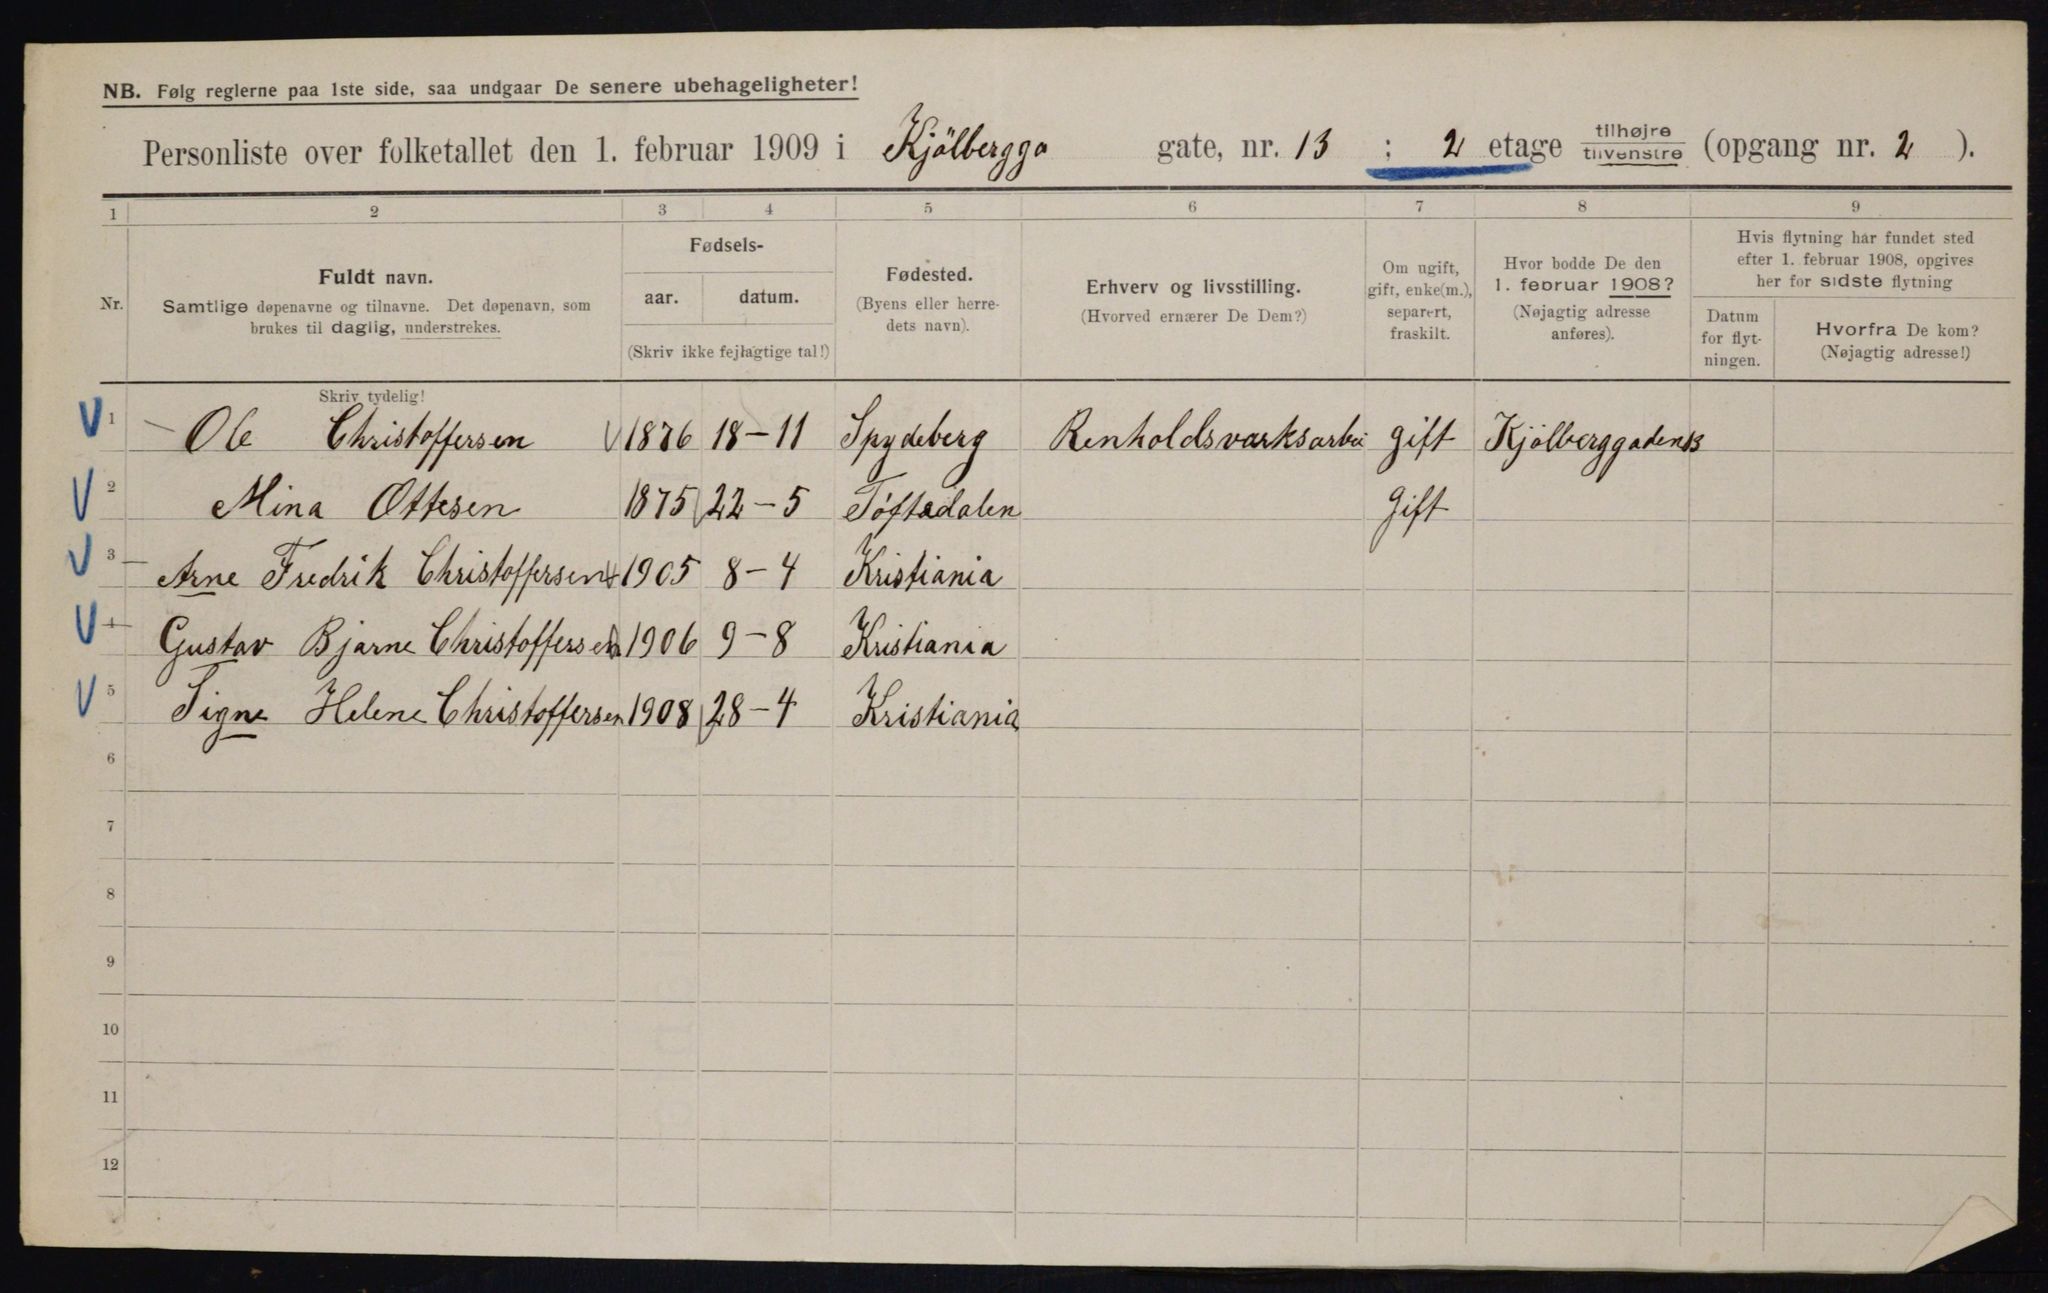 NB. Følg reglerne paa 1ste side, saa undgaar De senere ubehageligheter!
Personliste over folketallet den 1. februar 1909 i Kjölbergga gate, nr. 13 ; 2 etage tilhøjre tilvenstre (opgang nr. 2 ).
1 2 3 4 5 6 7 8 9
Nr.
Fuldt navn.
Samtlige døpenavne og tilnavne. Det døpenavn, som
brukes til daglig, understrekes.
Fødsels-
aar. datum.
(Skriv ikke fejlagtige tal!)
Fødested.
(Byens eller herre-
dets navn).
Erhverv og livsstilling.
(Hvorved ernærer De Dem?)
Om ugift,
gift, enke(m.),
separert,
fraskilt.
Hvor bodde De den
1. februar 1908?
(Nøjagtig adresse
anføres).
Hvis flytning har fundet sted
efter 1. februar 1908, opgives
her for sidste flytning
Datum
for flyt-
ningen.
Hvorfra De kom?
(Nøjagtig adresse!)
Skriv tydelig!
1 Ole Christoffersen 1876 18-11 Spydeberg Renholdsvarksarbei gift Kjölberggaden 13
2 Mina Ottesen 1875 22-5 Töftedalen Gift
3 Arne Fredrik Christoffersen 1905 8-4 Kristiania
4 Gustav Bjarne Christoffersen 1906 9-8 Kristiania
5 Signe Helene Christoffersen 1908 28-4 Kristiania
6
7
8
9
10
11
12